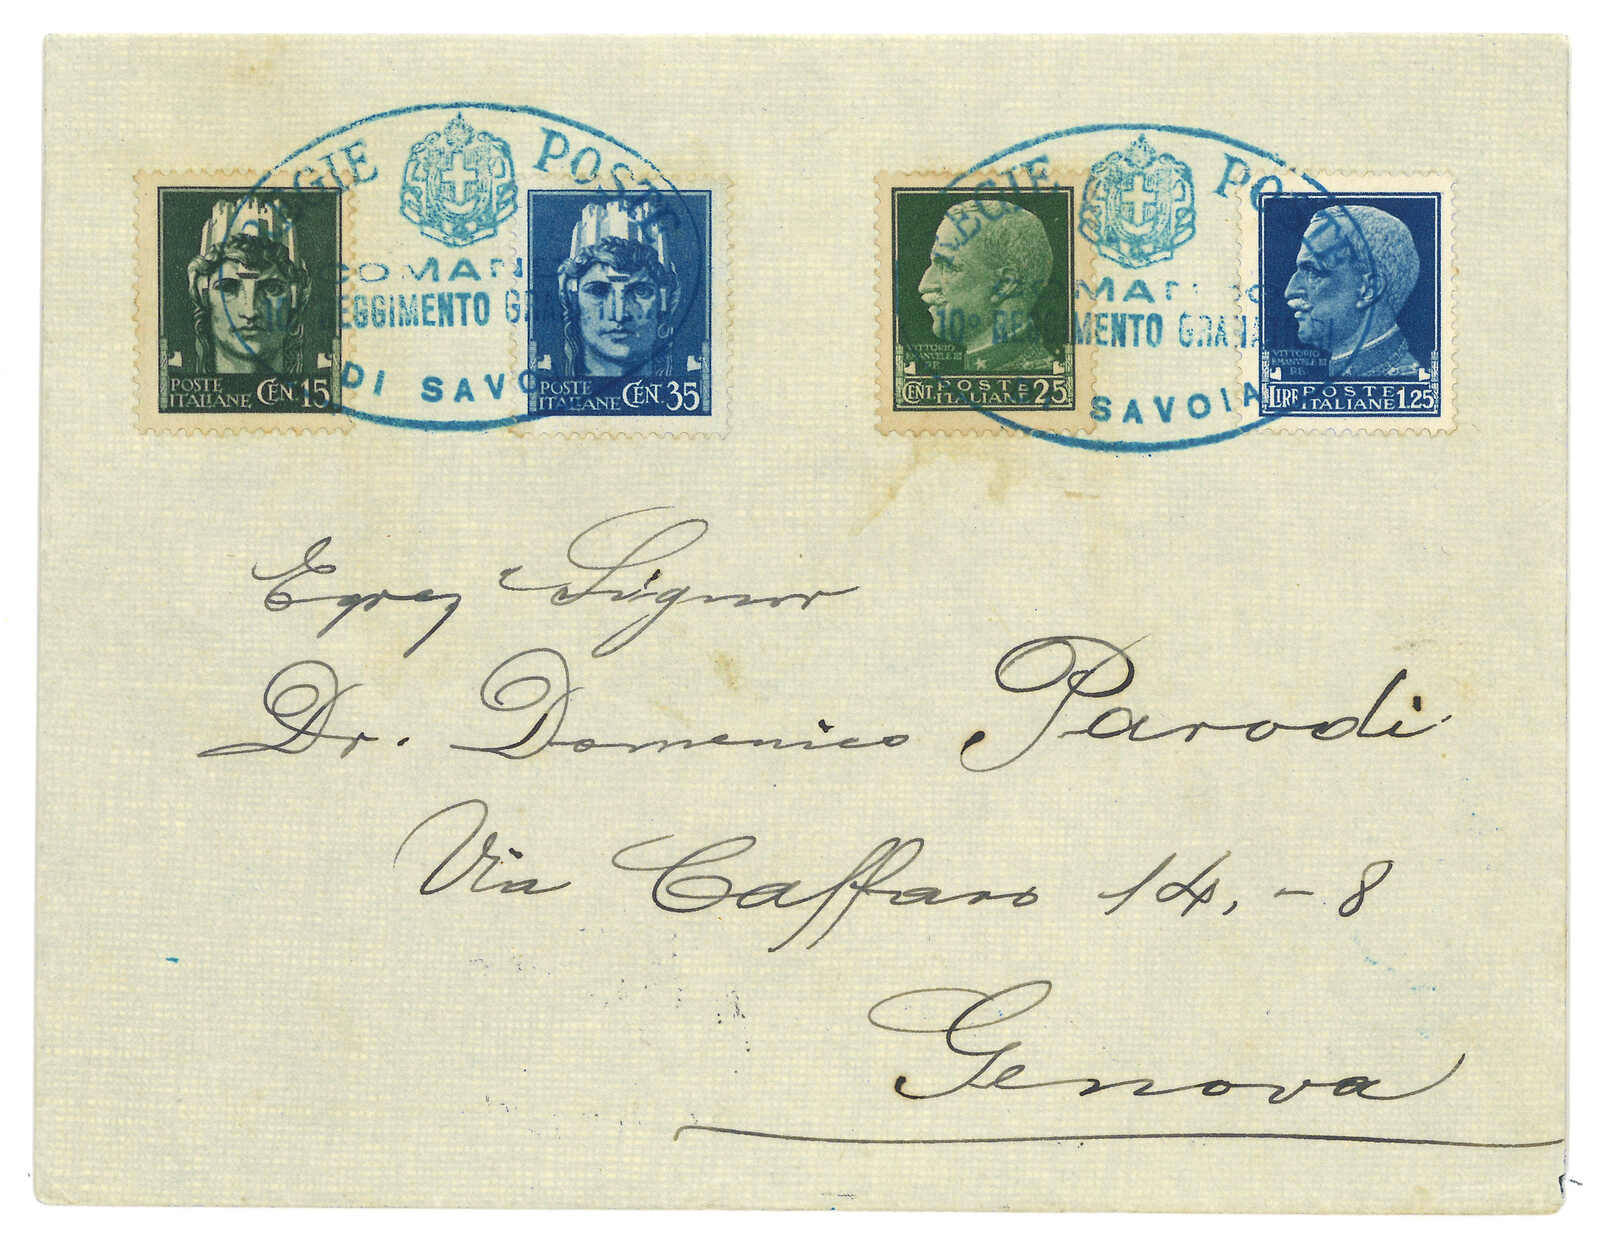 REGIE POSTE
COMAN
10° REGGIMENTO GRANATIERI
DI SAVO
POSTE
ITALIANE CEN. 15
POSTE
ITALIANE CENT. 35
REGIE POSTE
COMANDO
10° REGGIMENTO GRANATIERI
SAVOIA
VITTORIO
EMANVELE III
RE
CENT. POSTE
ITALIANE 25
VITTORIO
EMANVELE III
RE
LIRE POSTE
ITALIANE 1.25
Egreg Signor
Dr. Domenico Parodi
Via Caffaro 14, - 8
Genova